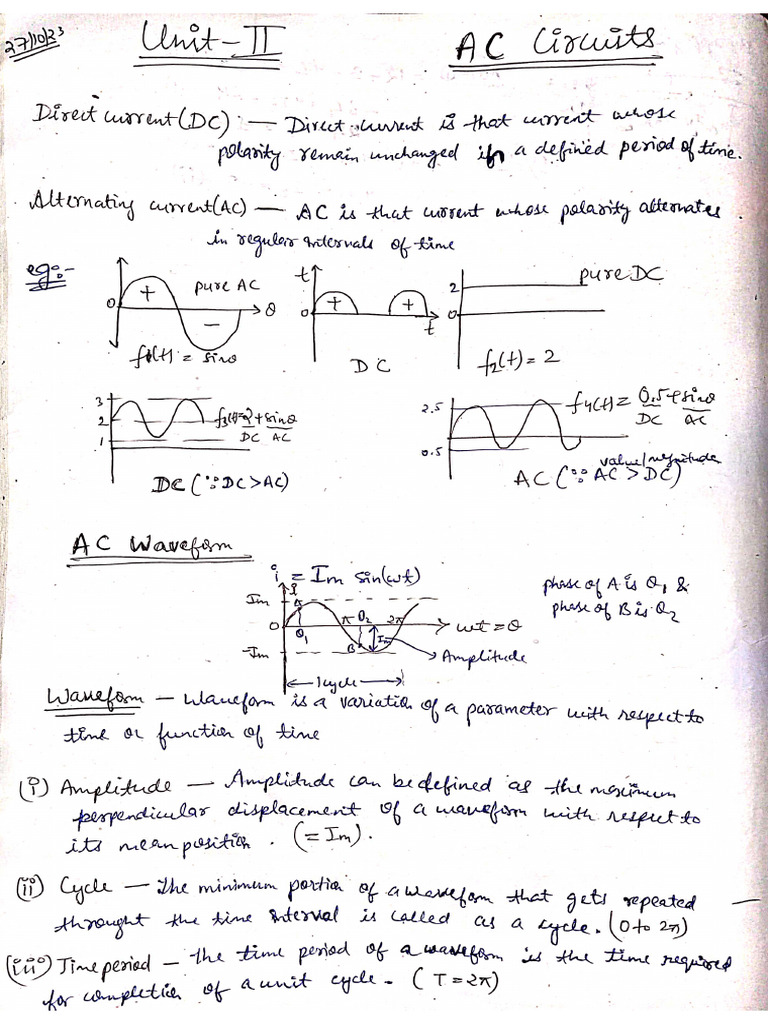 27/10/23
Unit-II AC Circuits
Direct current (DC) — Direct current is that current whose
polarity remain unchanged in a defined period of time.
Alternating current (AC) — AC is that current whose polarity alternates
in regular intervals of time
eg:-
+ pure AC
0 θ
−
f1(t) = sinθ
t
+ +
0
t
DC
pure DC
2
0
f2(t) = 2
3
2
1
f3(t)=2+sinθ
DC AC
DC (∵ DC > AC)
2.5
0.5
f4(t) = 0.5+sinθ
DC AC
value/magnitude
AC (∵ AC > DC)
AC Waveform
i = Im sin(ωt)
i
Im A
0 θ1 π θ2 2π ωt = θ
B Im
-Im
Amplitude
1 cycle
phase of A is θ1 &
phase of B is θ2
Waveform — Waveform is a variation of a parameter with respect to
time or function of time
(i) Amplitude — Amplitude can be defined as the maximum
perpendicular displacement of a waveform with respect to
its mean position. (= Im).
(ii) Cycle — The minimum portion of a waveform that gets repeated
throught the time interval is called as a cycle. (0 to 2π)
(iii) Time period — The time period of a waveform is the time required
for completion of a unit cycle. (T = 2π)